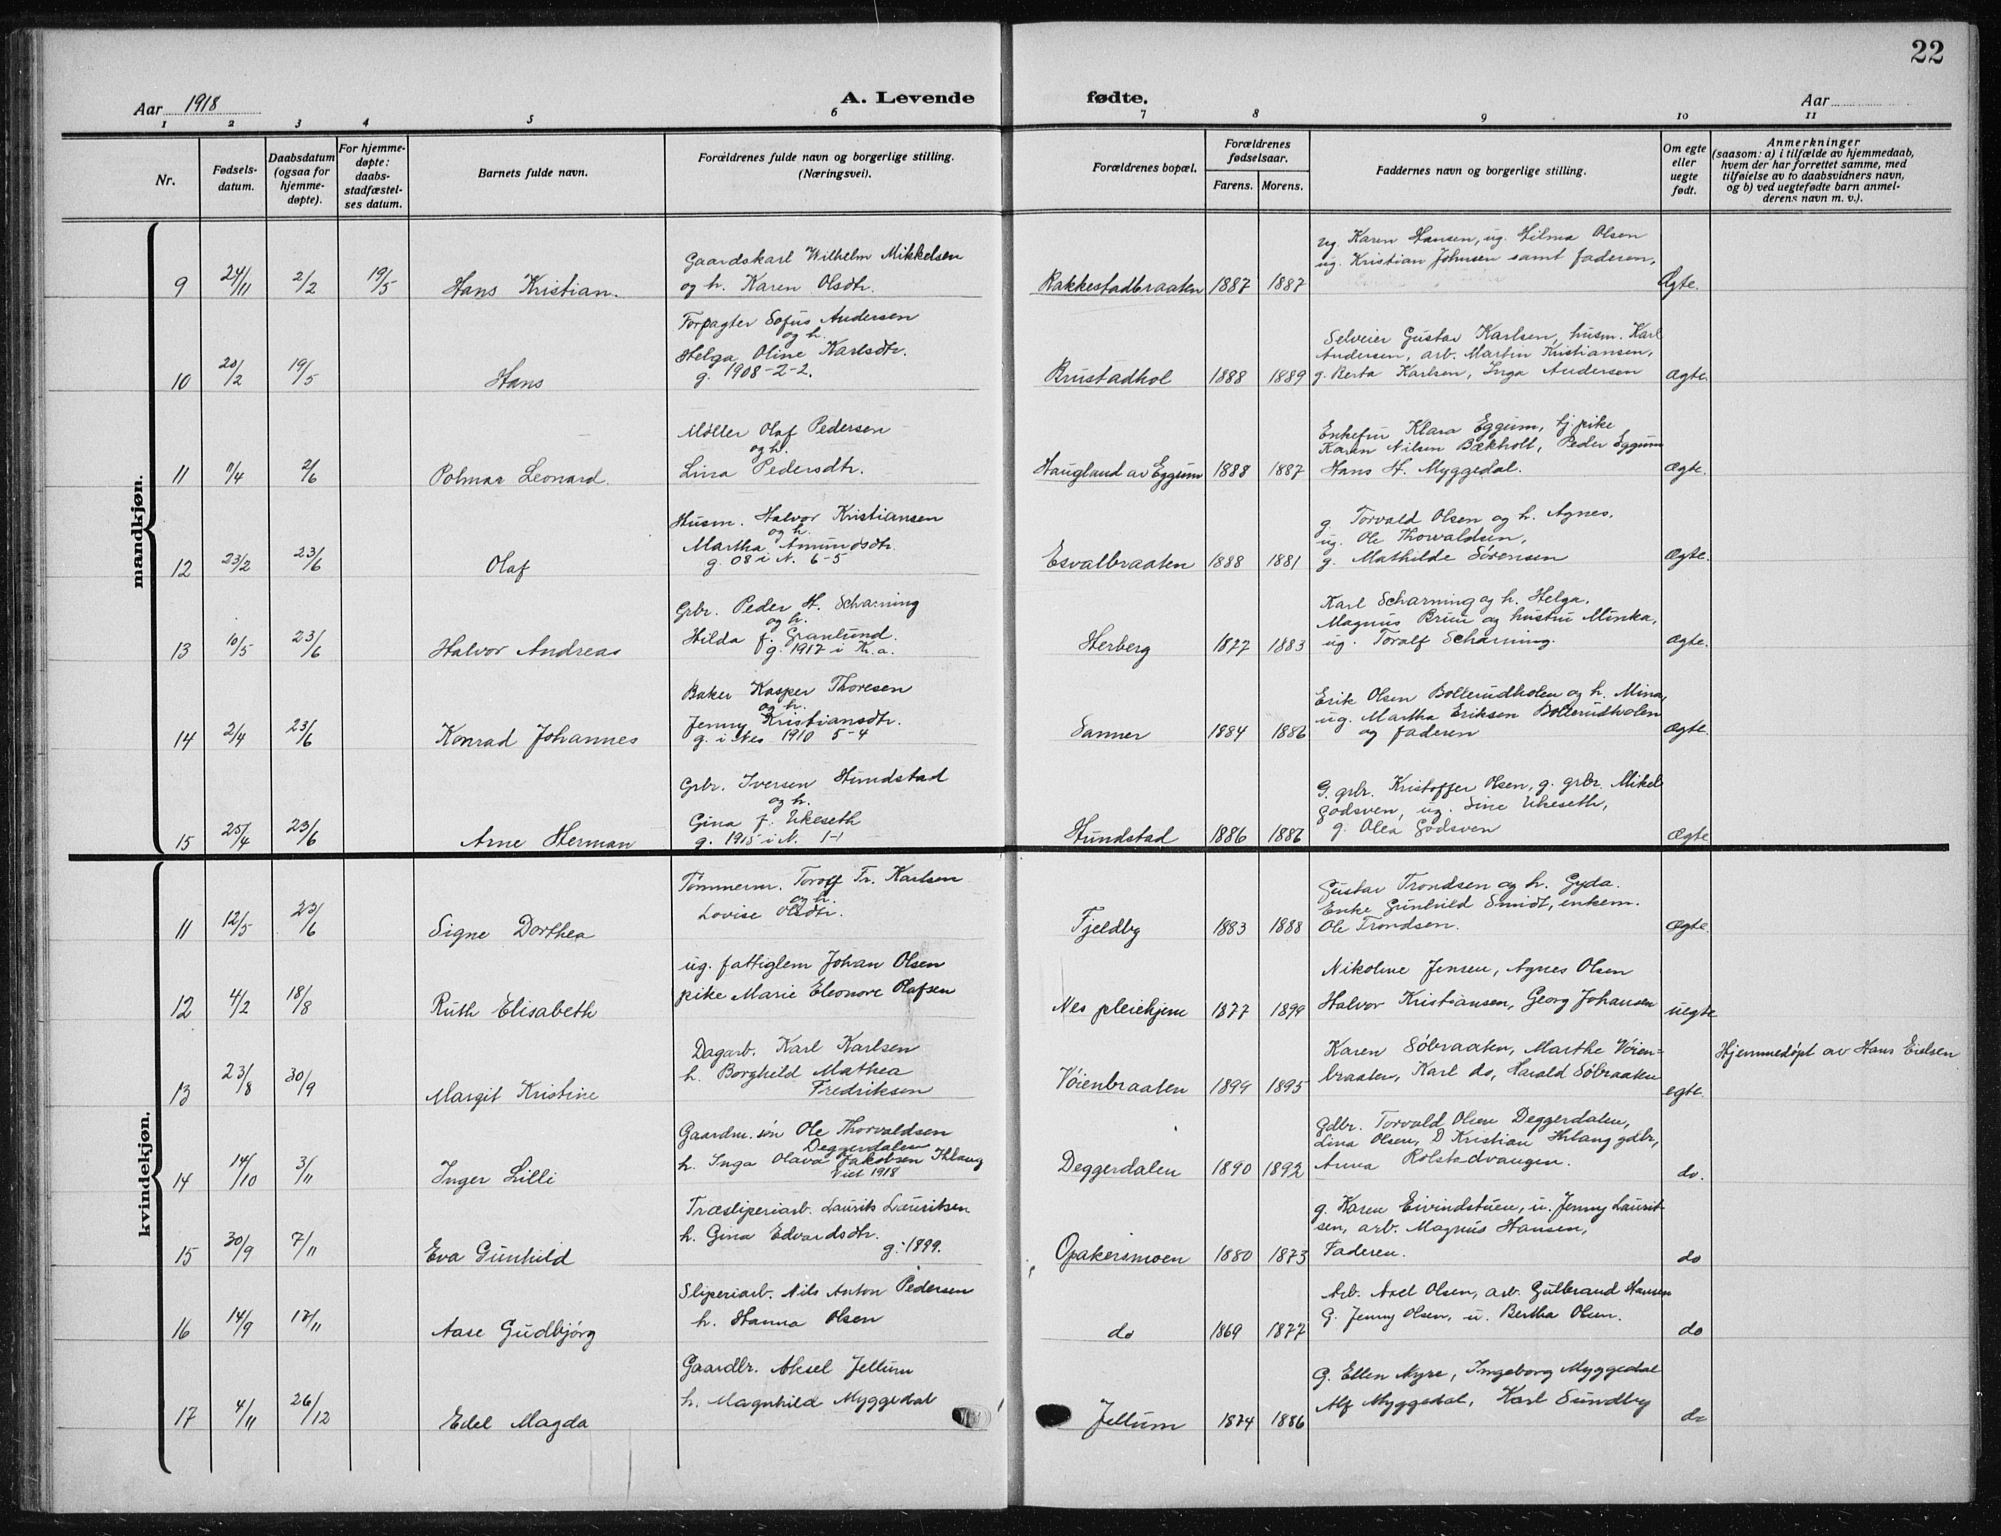 22
Aar 1918
A. Levende fødte.
Aar
1 2 3 4 5 6 7 8 9 10 11
Nr.
Fødsels-
datum.
Daabsdatum
(ogsaa for
hjemme-
døpte).
For hjemme-
døpte:
daabs-
stadfæstel-
ses datum.
Barnets fulde navn.
Forældrenes fulde navn og borgerlige stilling.
(Næringsvei).
Forældrenes bopæl.
Forældrenes
fødselsaar.
Farens. Morens.
Faddernes navn og borgerlige stilling.
Om egte
eller
uegte
født.
Anmerkninger
(saasom: a) i tilfælde av hjemmedaab,
hvem der har forrettet samme, med
tilføielse av to daabsvidners navn,
og b) ved uegtefødte barn anmel-
derens navn m. v.).
mandkjøn.
9 24/11 2/2 19/5 Hans Kristian.
Gaardskarl Wilhelm Mikkelsen
og h. Karen Olsdtr.
Rakkestadbraaten 1887 1887
ug. Karen Hansen, ug. Hilma Olsen
ug. Kristian Johnsen samt faderen,
Ægte.
10 20/2 19/5 Hans
Forpagter Sofus Andersen
og h.
Helga Oline Karlsdtr.
g. 1908-2-2.
Brustadhol 1888 1889
Selveier Gustav Karlsen, husm. Karl
Andersen, arb. Martin Kristiansen,
g. Berta Karlsen, Inga Andersen
ægte.
11 11/4 2/6 Polmar Leonard.
Møller Olaf Pedersen
og h.
Lina Pedersdtr.
Haugland av Eggum 1888 1887
Enkefru Klara Eggum, tj. pike
Karen Nilsen Bækholt, Peder Eggum
Hans H. Myggedal.
Ægte.
12 23/2 23/6 Olaf
Husm. Halvor Kristiansen
og h.
Martha Amundsdtr.
g. 08 i N. 6-5
Esvalbraaten 1888 1881
g. Torvald Olsen og h. Agnes,
ug. Ole Thorvaldsen,
g. Mathilde Sørensen
Ægte.
13 10/5 23/6 Halvor Andreas
Grbr. Peder H. Scharning
og h.
Hilda f. Granlund.
g. 1917 i Kr.a.
Herberg 1877 1883
Karl Scharning og h. Helga,
Magnus Bruu og hustru Minka,
ug. Toralf Scharning.
Ægte.
14 2/4 23/6 Konrad Johannes
Baker Kasper Thoresen
og h.
Jenny Kristiansdtr.
g. i Nes 1910 5-4
Sanner 1884 1886
Erik Olsen Bollerudholen og h. Mina,
ug. Martha Eriksen Bollerudholen
og faderen
Ægte.
15 25/4 23/6 Arne Herman
Grbr. Iversen Hundstad
og h.
Gina f. Ukeseth
g. 1915 i N. 1-1
Hundstad 1886 1887
G. grbr. Kristoffer Olsen, g. grbr. Mikel
Godsven, ug. Sine Ukeseth,
g. Olea Godsven
Ægte
kvindekjøn.
11 12/5 23/6 Signe Dorthea
Tømmerm. Torolf Fr. Karlsen
og h.
Lovise Olsdtr.
Fjeldby 1883 1888
Gustav Trondsen og h. Gyda.
Enke Gunhild Smidt, enkem.
Ole Trondsen.
Ægte.
12 4/2 18/8 Ruth Elisabeth
ug. fattiglem Johan Olsen
pike Marie Eleonore Olafsen
Nes pleiehjem 1877 1899
Nikoline Jensen, Agnes Olsen
Halvor Kristiansen, Georg Johansen
uegte
13 23/8 30/9 Margit Kristine
Dagarb. Karl Karlsen
h. Borghild Mathea
Fredriksen
Vøienbraaten 1899 1895
Karen Søbraaten, Marthe Vøien-
braaten, Karl do, Harald Søbraaten
egte.
Hjemmedøpt av Hans Eielsen
14 14/10 3/11 Inger Lilli
Gaardm. søn Ole Thorvaldsen
Deggerdalen
h. Inga Olava Jakobsen Ihlang
Viet 1918
Deggerdalen 1890 1892
Gdbr. Torvald Olsen Deggerdalen,
Lina Olsen, D Kristian Ihlang gdbr,
Anna Rolstadvangen.
do.
15 30/9 7/11 Eva Gunhild
Træsliperiarb. Laurits Lauritsen
h. Gina Edvardsdtr.
g. 1899.
Opakermoen 1880 1873
g. Karen Eivindstuen, u. Jenny Laurit-
sen, arb. Magnus Hansen,
Faderen.
do
16 14/9 17/11 Aase Gudbjørg
Sliperiarb. Nils Anton Pedersen
h. Hanna Olsen
do 1869 1877
Arb. Axel Olsen, arb. Gulbrand Hansen
G. Jenny Olsen, u. Bertha Olsen.
do
17 4/11 26/12 Edel Magda
Gaardbr. Aksel Jellum
h. Magnhild Myggedal
Jellum 1874 1886
G. Ellen Myre, Ingeborg Myggedal
Alf Myggedal, Karl Sundby
do